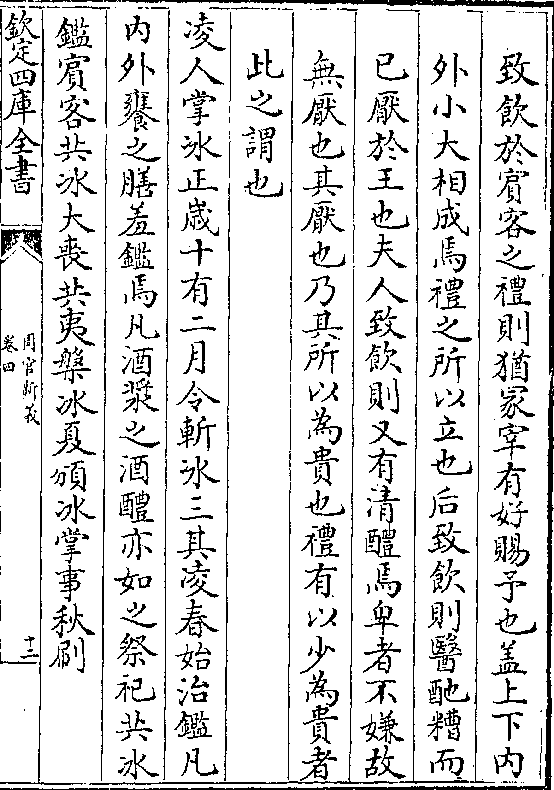 致飲於賔客之禮則猶冢宰有好賜予也盖上下内
外小大相成焉禮之所以立也后致飲則醫酏糟而
已厭於王也夫人致飲則又有清醴焉卑者不嫌故
無厭也其厭也乃其所以為貴也禮有以少為貴者
此之謂也
凌人掌冰正歲十有二月令斬冰三其凌春始治鑑凡
内外饔之膳羞鑑焉凡酒漿之酒醴亦如之祭祀共冰
鑑賔客共冰大喪共夷槃冰夏頒冰掌事秋刷
欽定四庫全書
周官新義
卷四
十二